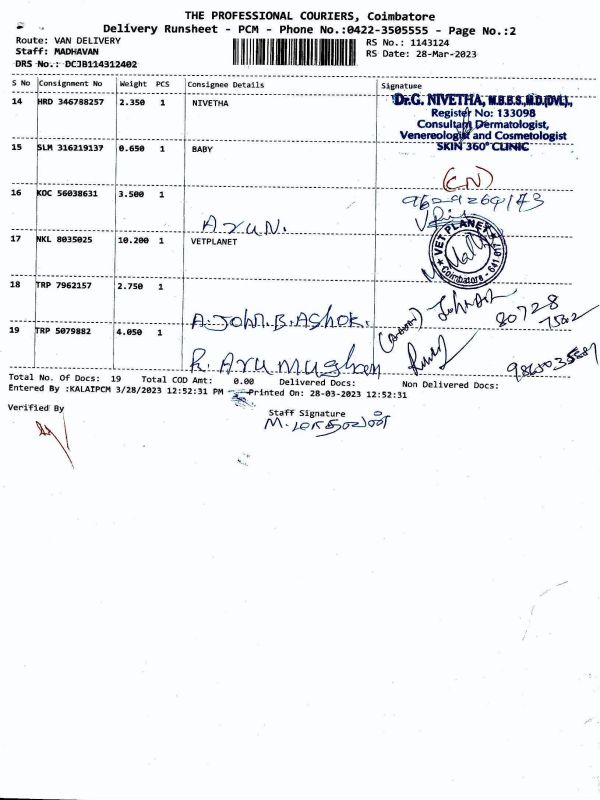 THE PROFESSIONAL COURIERS, Coimbatore
Delivery Runsheet - PCM - Phone No.:0422-3505555 - Page No.:2
Route: VAN DELIVERY
RS No.: 1143124
Staff: MADHAVAN
RS Date: 28-Mar-2023
DRS No.: DCJB114312402
S No Consignment No Weight PCS Consignee Details Signature
14 HRD 346788257 2.350 1 NIVETHA
Dr.G. NIVETHA, M.B.B.S.,M.D.(DVL).,
Register No: 133098
Consultant Dermatologist,
Venereologist and Cosmetologist
SKIN 360° CLINIC
15 SLM 316219137 0.650 1 BABY
16 KOC 56038631 3.500 1
Arun.
17 NKL 8035025 10.200 1 VETPLANET
VET PLANET
Coimbatore - 641 011
18 TRP 7962157 2.750 1
A. John. B. Ashok.
80728
19 TRP 5079882 4.050 1
R. Arumugham
Total No. Of Docs: 19 Total COD Amt: 0.00 Delivered Docs: Non Delivered Docs:
Entered By :KALAIPCM 3/28/2023 12:52:31 PM Printed On: 28-03-2023 12:52:31
Verified By
Staff Signature
M. மாதவன்